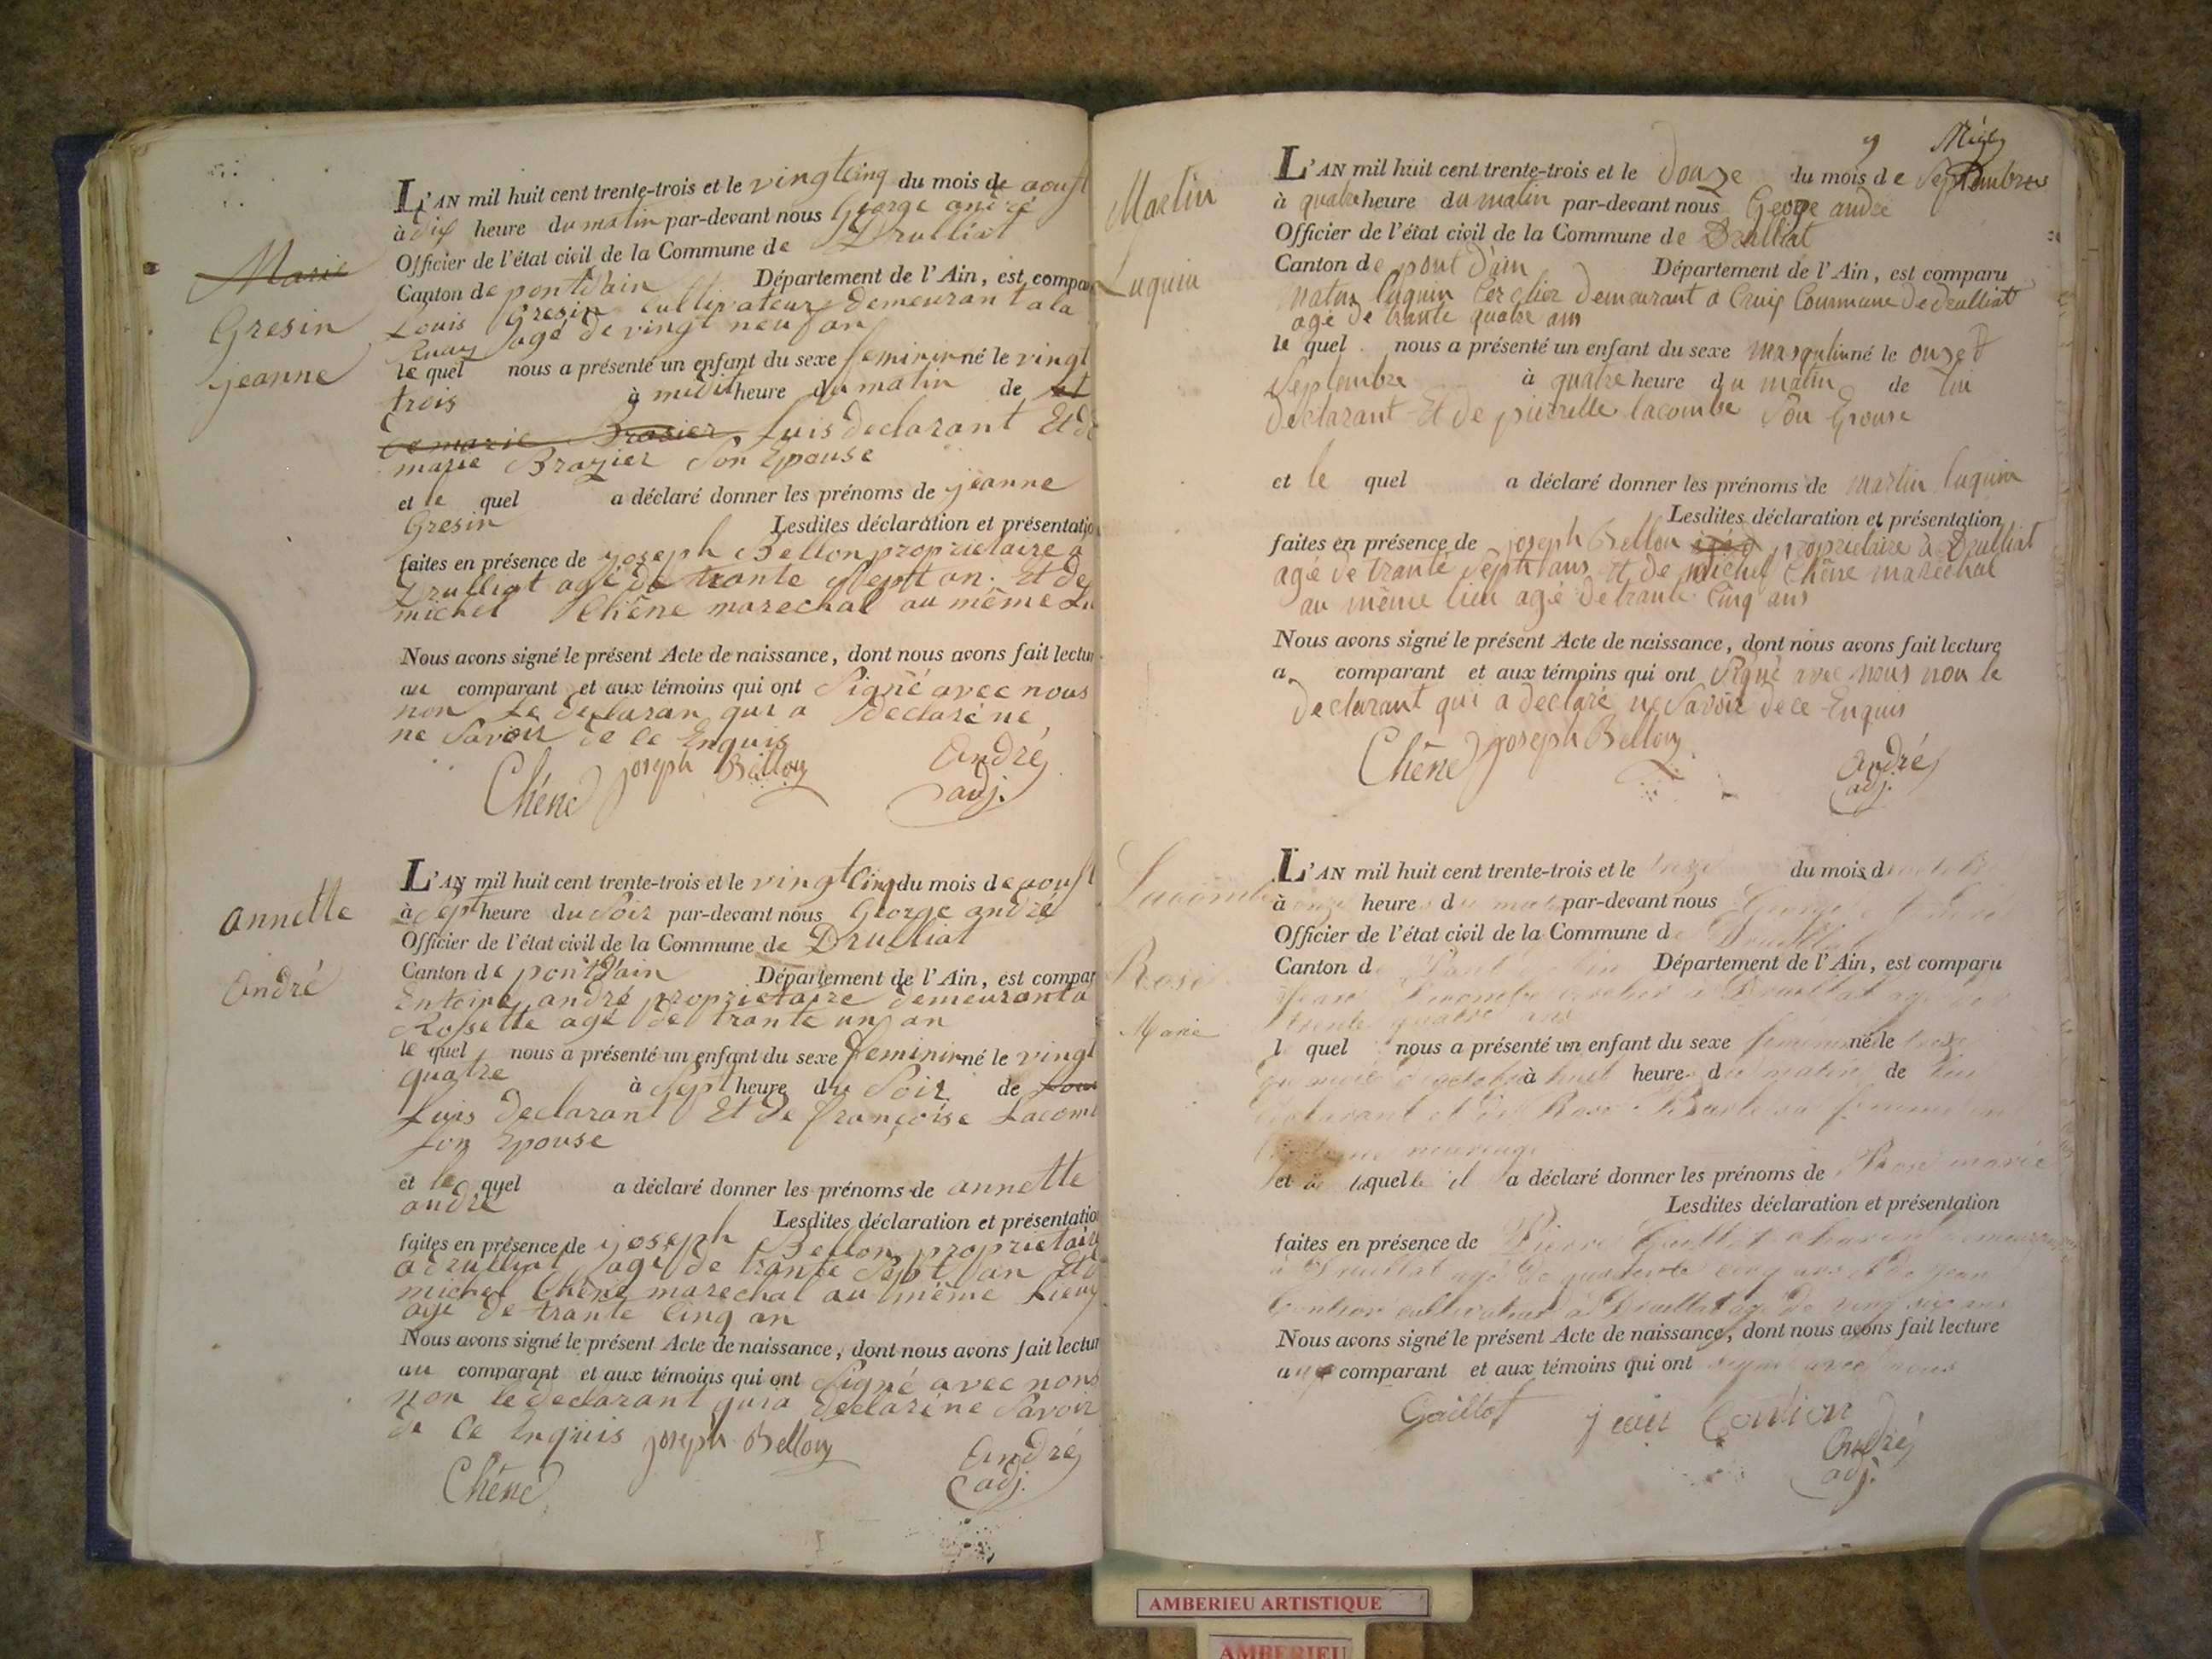 Marie
Gresin
jeanne
L'AN mil huit cent trente-trois et le vingt cinq du mois de aoust
à dix heure du matin par-devant nous George andré
Officier de l'état civil de la Commune de Drulliat
Canton de pont d'ain Département de l'Ain, est compa
Louis Gresin cultivateur demeurant a la
agé de vingt neuf an
le quel nous a présenté un enfant du sexe feminin né le vingt
trois à midi heure du matin de et
de marie Brazier Luis declarant Et de
marie Brazier Son Epouse
et le quel a déclaré donner les prénoms de jeanne
Gresin Lesdites déclaration et présentatio
faites en présence de joseph Bellon proprietaire a
Drulliat agé de trante Sept an. Et de
michel Chêne marechal au même Lu
Nous avons signé le présent Acte de naissance, dont nous avons fait lectur
au comparant et aux témoins qui ont Signé avec nous
non Le declaran qui a declaré ne
ne Savoir de ce Enquis
Chêne joseph Bellon André
adj.
annette
andré
L'AN mil huit cent trente-trois et le vingt Cinq du mois de aoust
à Sept heure du Soir par-devant nous George andré
Officier de l'état civil de la Commune de Drulliat
Canton de pont d'ain Département de l'Ain, est compar
Entoine andré proprietaire demeurant a
Rossette agé de trante un an
le quel nous a présenté un enfant du sexe feminin né le vingt
quatre à Sept heure du Soir de
Luis declarant Et de françoise Lacomb
Son Epouse
et le quel a déclaré donner les prénoms de annette
andré Lesdites déclaration et présentatio
faites en présence de joseph Bellon proprietaire
a drulliat agé de trante Sept an Et d
michel Chêne marechal au même Lieu
agé de trante Cinq an
Nous avons signé le présent Acte de naissance, dont nous avons fait lectur
au comparant et aux témoins qui ont Signé avec nous
non le declarant qui a declaré ne Savoir
de Ce Enquis joseph Bellon André
Chêne adj.
9
Martin
Luquin
L'AN mil huit cent trente-trois et le douze du mois de Septembre
à quatre heure du matin par-devant nous George andré
Officier de l'état civil de la Commune de Drulliat
Canton de pont d'ain Département de l'Ain, est comparu
luquin Cerclier demeurant a Cruix Commune de drulliat
agé de trante quatre ans
le quel nous a présenté un enfant du sexe masqulin né le onze
Septembre à quatre heure du matin de lui
declarant Et de pierrette lacombe Son Epouse
et le quel a déclaré donner les prénoms de martin luquin
Lesdites déclaration et présentation
faites en présence de joseph Bellon proprietaire à Drulliat
agé de trante Sept ans Et de michel Chêne marechal
au même lieu agé de trante Cinq ans
Nous avons signé le présent Acte de naissance, dont nous avons fait lecture
a comparant et aux témoins qui ont Signé avec nous non le
declarant qui a declaré ne Savoir de ce Enquis
Chêne joseph Bellon André
adj.
Lacombe
Rose
Marie
L'AN mil huit cent trente-trois et le du mois d'octobre
à onze heures du matin par-devant nous George
Officier de l'état civil de la Commune de Druillat
Canton de Pont d'Ain Département de l'Ain, est comparu
Lacombe à Druillat agé de
trente quatre ans
le quel nous a présenté un enfant du sexe feminin né le
du mois d'octobre à huit heures du matin de lui
declarant et de Rose sa femme en
mariage
et a laquelle il a déclaré donner les prénoms de Rose marie
Lesdites déclaration et présentation
faites en présence de Pierre Gaillot
à Druillat agé de quarante cinq ans et de jean
Contion cultivateur à Druillat agé de vingt six ans
Nous avons signé le présent Acte de naissance, dont nous avons fait lecture
aux comparant et aux témoins qui ont signé avec nous
Gaillot jean Contion
André
adj.
AMBERIEU ARTISTIQUE
AMBERIEU